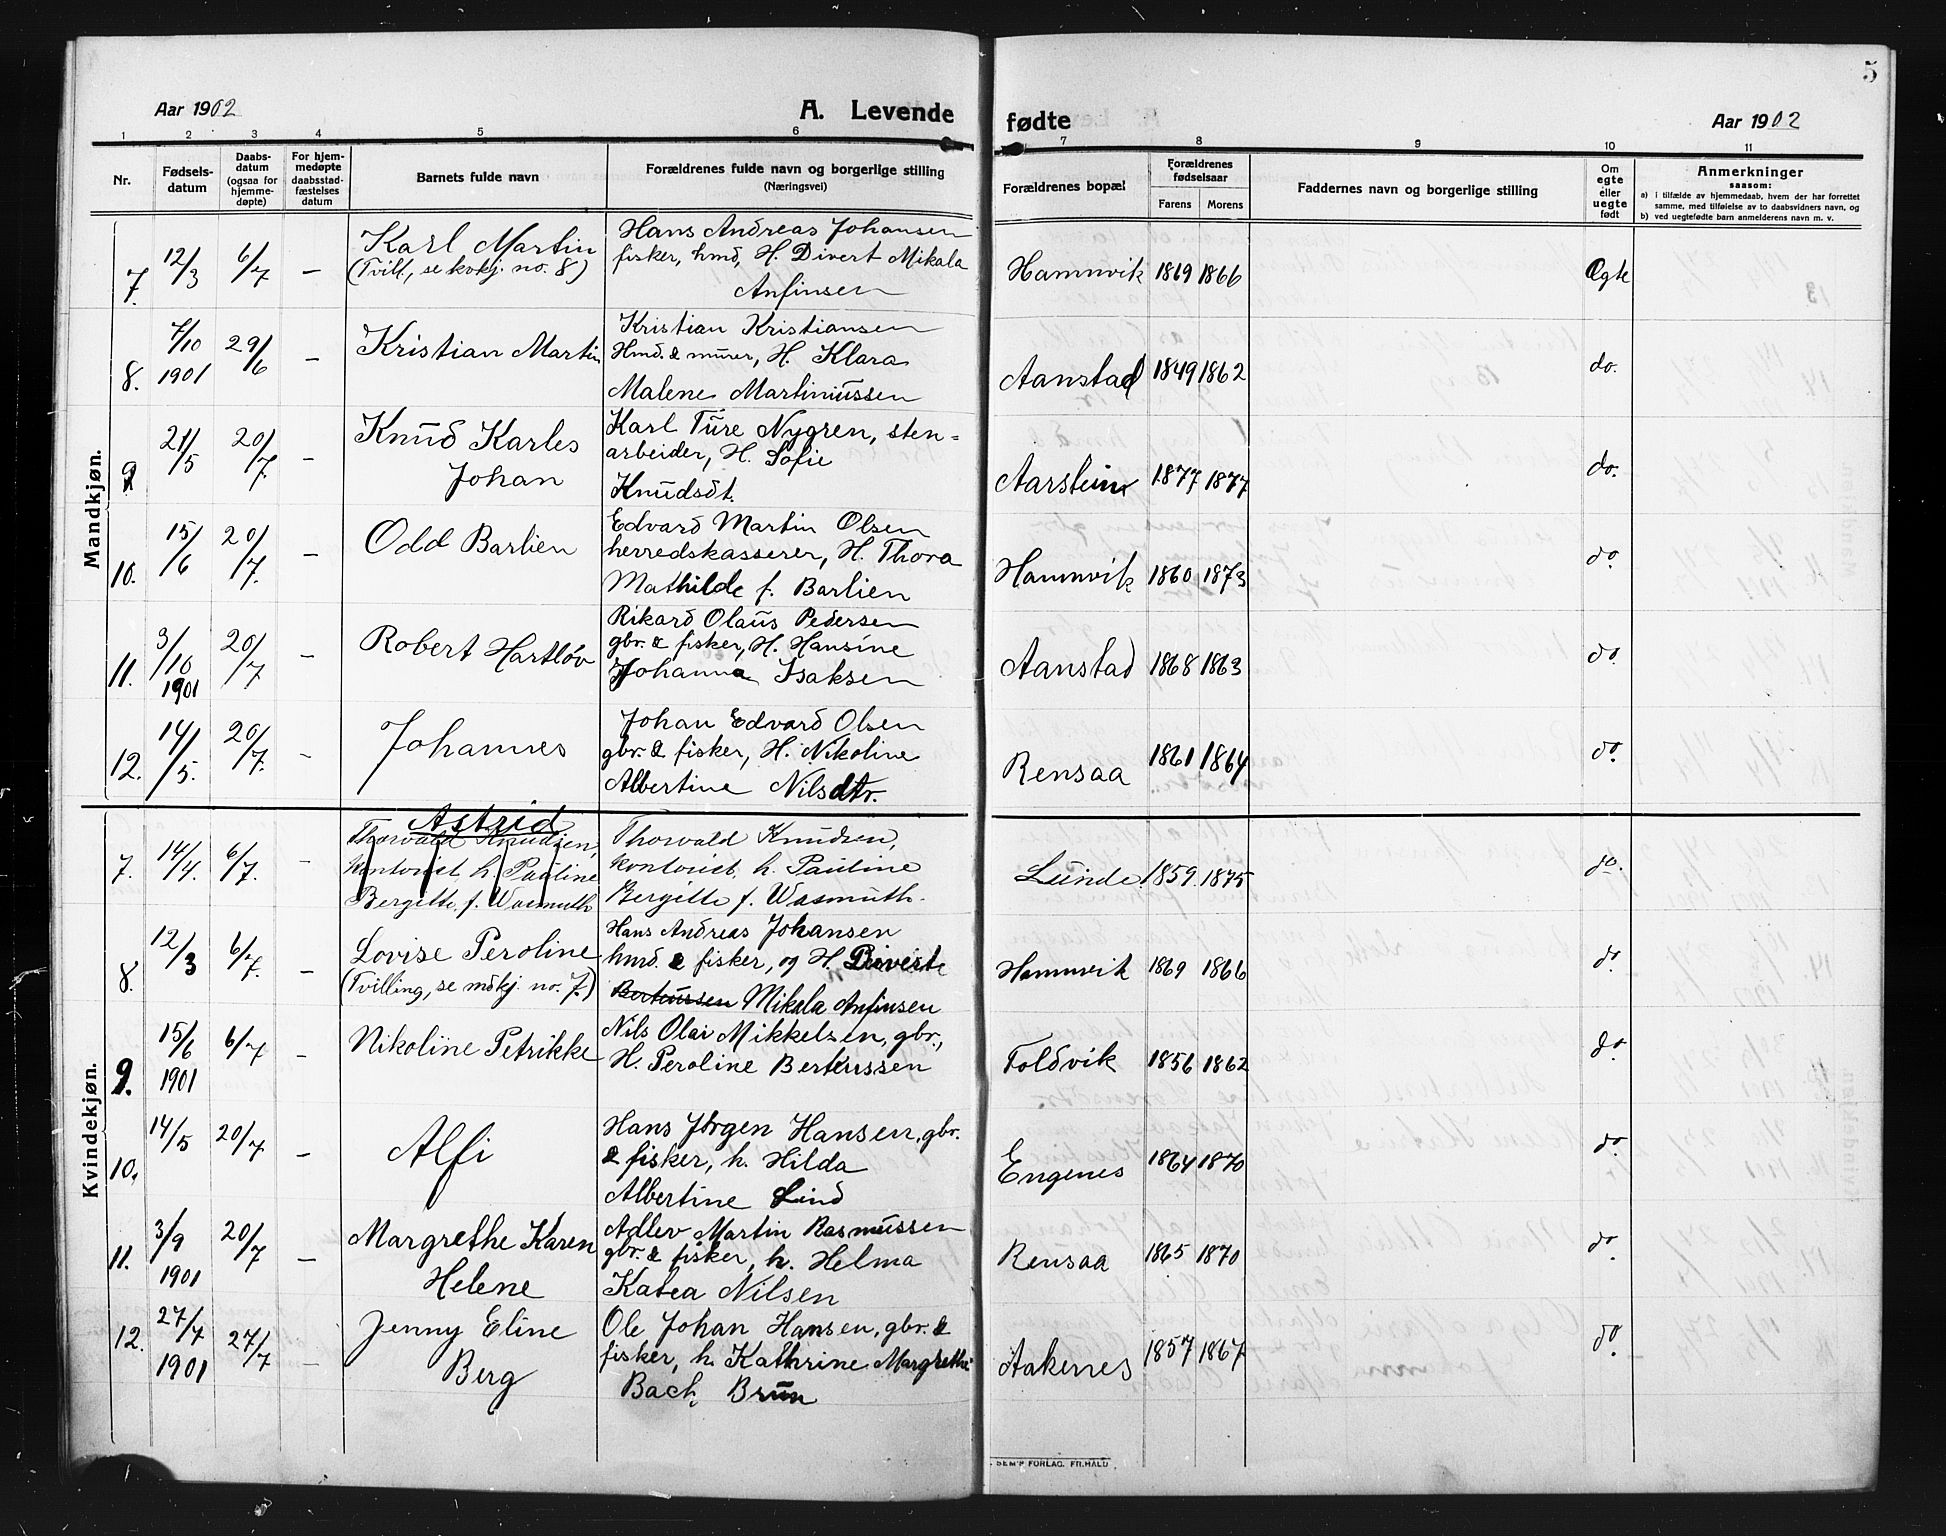 5
Aar 1902
A. Levende
fødte
Aar 1902
1 2 3 4 5 6 7 8 9 10 11
Nr.
Fødsels-
datum
Daabs-
datum
(ogsaa for
hjemme-
døpte)
For hjem-
medøpte
daabsstad-
fæstelses
datum
Barnets fulde navn
Forældrenes fulde navn og borgerlige stilling
(Næringsvei)
Forældrenes bopæl
Forældrenes
fødselsaar
Farens Morens
Faddernes navn og borgerlige stilling
Om
egte
eller
uegte
født
Anmerkninger
saasom:
a) i tilfælde av hjemmedaab, hvem der har forrettet
samme, med tilføielse av to daabsvidners navn, og
b) ved uegtefødte barn anmelderens navn m. v.
Mandkjøn.
7. 12/3 6/7 –
Karl Martin
(Tvill, se kvkj. no. 8)
Hans Andreas Johansen
fisker, hmd, H. Divert Mikala
Anfinsen
Hamnvik 1869 1866 Egte
8. 7/10 1901 29/6 –
Kristian Martin
Kristian Kristiansen
Hmd. & murer, H. Klara
Malene Martinussen
Aanstad 1849 1862 do.
9 21/5 20/7. –
Knud Karles
Johan
Karl Ture Nygren, sten=
arbeider, H. Sofie
Knudsdt.
Aarstein 1877 1877 do.
10. 15/6 20/7. –
Odd Barlien
Edvard Martin Olsen
herredskasserer, H. Thora
Mathilde f. Barlien
Hamnvik 1860 1873 do
11. 3/10 1901 20/7. –
Robert Hartløv
Rikard Olaus Pedersen
gbr. & fisker, H. Hansine
Johanna Isaksen
Aanstad 1868 1863 do.
12. 14/5. 20/7. –
Johannes
Johan Edvard Olsen
gbr. & fisker, H. Nikoline
Albertine Nilsdtr.
Rensaa 1861 1864 do.
Kvindekjøn.
7. 14/4. 6/7. –
Astrid
Thorvald Knudsen,
kontorist h. Pauline
Bergitte f. Wasmuth
Thorvald Knudsen,
kontorist h. Pauline
Bergitte f. Wasmuth.
Lunde 1859 1875 do.
8. 12/3 6/7. –
Lovise Peroline
(Tvilling, se mdkj. no. 7.)
Hans Andreas Johansen
hmd. & fisker, og H.
Berteussen Mikala Anfinsen
Hamnvik 1869 1866 do.
9. 15/6 1901 6/7 –
Nikoline Petrikke
Nils Olai Mikkelsen, gbr.,
H. Peroline Berteussen
Foldvik 1856 1862 do.
10. 14/5 20/7 –
Alfi
Hans Jørgen Hansen, gbr.
& fisker, h. Hilda
Albertine Lind
Engenes 1864 1870 do.
11. 3/9 1901 20/7 –
Margrethe Karen
Helene
Adlev Martin Rasmussen
gbr. & fisker, h. Helma
Katea Nilsen
Rensaa 1865 1870 do.
12. 27/7 1901 27/7 –
Jenny Eline
Berg
Ole Johan Hansen, gbr. &
fisker, h. Kathrine Margrethe
Bach Brun
Aakernes 1857 1867 do.
SEM'S FORLAG. FR.HALD